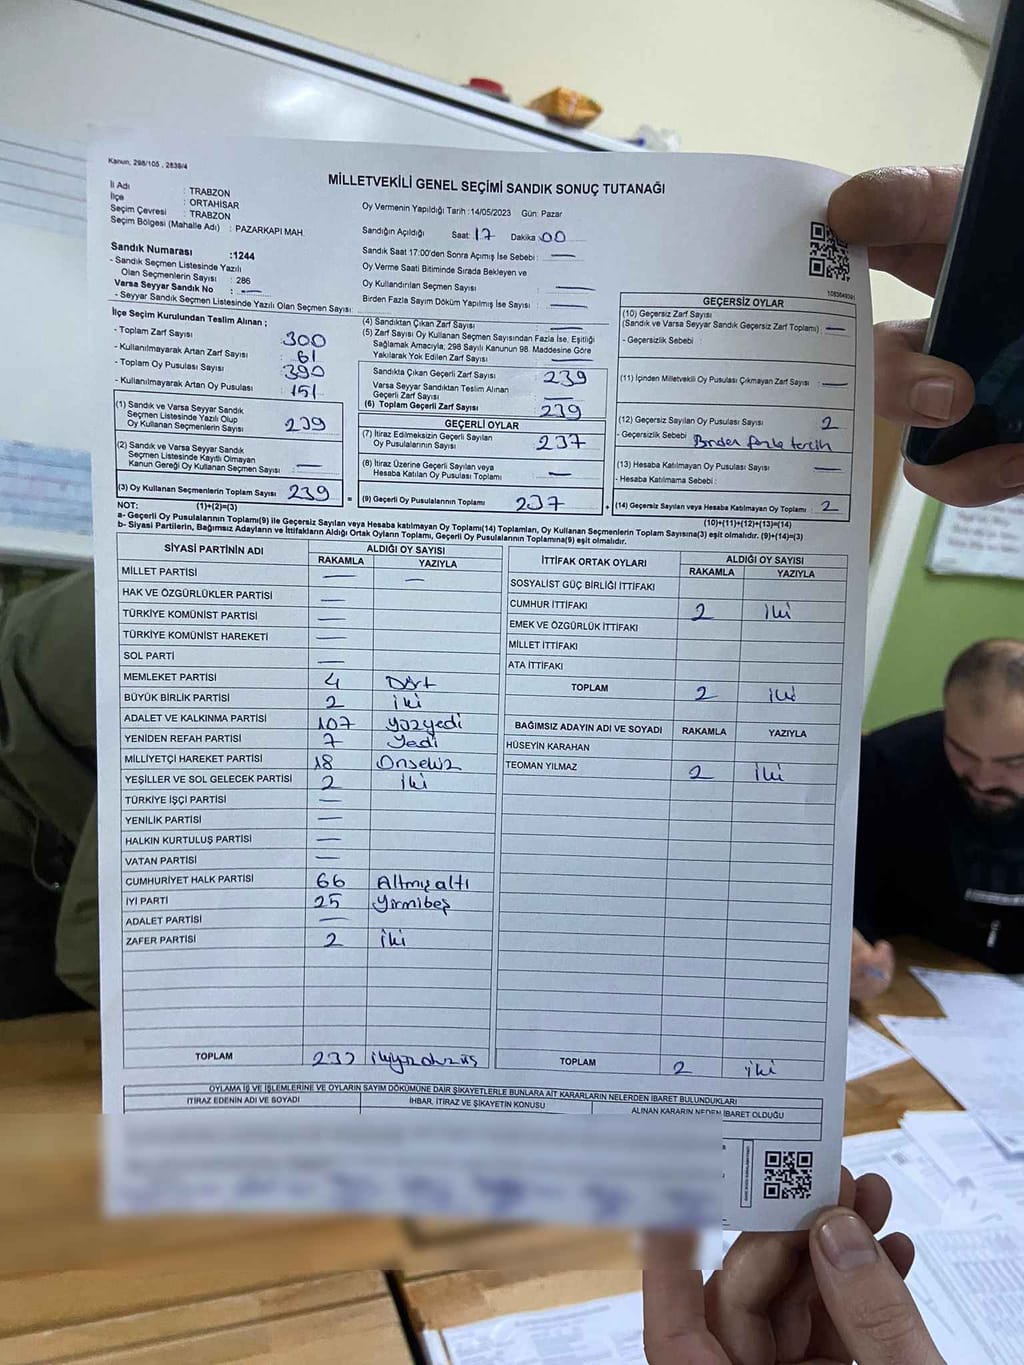 Kanun, 298/105 , 2839/4
MİLLETVEKİLİ GENEL SEÇİMİ SANDIK SONUÇ TUTANAĞI
İl Adı : TRABZON
İlçe : ORTAHİSAR
Seçim Çevresi : TRABZON
Seçim Bölgesi (Mahalle Adı) : PAZARKAPI MAH.
Sandık Numarası :1244
- Sandık Seçmen Listesinde Yazılı
Olan Seçmenlerin Sayısı : 286
Varsa Seyyar Sandık No : —
- Seyyar Sandık Seçmen Listesinde Yazılı Olan Seçmen Sayısı:
Oy Vermenin Yapıldığı Tarih :14/05/2023 Gün: Pazar
Sandığın Açıldığı Saat: 17 Dakika :00
Sandık Saat 17:00'den Sonra Açımış İse Sebebi : —
Oy Verme Saati Bitiminde Sırada Bekleyen ve
Oy Kullandırılan Seçmen Sayısı : —
Birden Fazla Sayım Döküm Yapılmış İse Sayısı : —
İlçe Seçim Kurulundan Teslim Alınan ;
- Toplam Zarf Sayısı : 300
- Kullanılmayarak Artan Zarf Sayısı : 61
- Toplam Oy Pusulası Sayısı : 390
- Kullanılmayarak Artan Oy Pusulası : 151
(1) Sandık ve Varsa Seyyar Sandık
Seçmen Listesinde Yazılı Olup
Oy Kullanan Seçmenlerin Sayısı : 239
(2) Sandık ve Varsa Seyyar Sandık
Seçmen Listesinde Kayıtlı Olmayan
Kanun Gereği Oy Kullanan Seçmen Sayısı : —
(3) Oy Kullanan Seçmenlerin Toplam Sayısı : 239
(4) Sandıktan Çıkan Zarf Sayısı : —
(5) Zarf Sayısı Oy Kullanan Seçmen Sayısından Fazla İse, Eşitliği
Sağlamak Amacıyla; 298 Sayılı Kanunun 98. Maddesine Göre
Yakılarak Yok Edilen Zarf Sayısı : —
Sandıkta Çıkan Geçerli Zarf Sayısı : 239
Varsa Seyyar Sandıktan Teslim Alınan
Geçerli Zarf Sayısı : —
(6) Toplam Geçerli Zarf Sayısı : 239
GEÇERLİ OYLAR
(7) İtiraz Edilmeksizin Geçerli Sayılan
Oy Pusulalarının Sayısı : 237
(8) İtiraz Üzerine Geçerli Sayılan veya
Hesaba Katılan Oy Pusulası Toplamı : —
= (9) Geçerli Oy Pusulalarının Toplamı : 237
108364939
GEÇERSİZ OYLAR
(10) Geçersiz Zarf Sayısı
(Sandık ve Varsa Seyyar Sandık Geçersiz Zarf Toplamı) : —
- Geçersizlik Sebebi :
(11) İçinden Milletvekili Oy Pusulası Çıkmayan Zarf Sayısı : —
(12) Geçersiz Sayılan Oy Pusulası Sayısı : 2
- Geçersizlik Sebebi : Birden fazla tercih
(13) Hesaba Katılmayan Oy Pusulası Sayısı : —
- Hesaba Katılmama Sebebi :
+ (14) Geçersiz Sayılan veya Hesaba Katılmayan Oy Toplamı : 2
NOT: (1)+(2)=(3) (10)+(11)+(12)+(13)=(14)
a- Geçerli Oy Pusulalarının Toplamı(9) ile Geçersiz Sayılan veya Hesaba katılmayan Oy Toplamı(14) Toplamları, Oy Kullanan Seçmenlerin Toplam Sayısına(3) eşit olmalıdır. (9)+(14)=(3)
b- Siyasi Partilerin, Bağımsız Adayların ve İttifakların Aldığı Ortak Oyların Toplamı, Geçerli Oy Pusulalarının Toplamına(9) eşit olmalıdır.
SİYASİ PARTİNİN ADI ALDIĞI OY SAYISI
RAKAMLA YAZIYLA
MİLLET PARTİSİ — —
HAK VE ÖZGÜRLÜKLER PARTİSİ —
TÜRKİYE KOMÜNİST PARTİSİ —
TÜRKİYE KOMÜNİST HAREKETİ —
SOL PARTİ —
MEMLEKET PARTİSİ 4 Dört
BÜYÜK BİRLİK PARTİSİ 2 İki
ADALET VE KALKINMA PARTİSİ 107 Yüzyedi
YENİDEN REFAH PARTİSİ 7 Yedi
MİLLİYETÇİ HAREKET PARTİSİ 18 Onsekiz
YEŞİLLER VE SOL GELECEK PARTİSİ 2 İki
TÜRKİYE İŞÇİ PARTİSİ —
YENİLİK PARTİSİ —
HALKIN KURTULUŞ PARTİSİ —
VATAN PARTİSİ —
CUMHURİYET HALK PARTİSİ 66 Altmışaltı
İYİ PARTİ 25 Yirmibeş
ADALET PARTİSİ —
ZAFER PARTİSİ 2 İki
TOPLAM 233
İTTİFAK ORTAK OYLARI ALDIĞI OY SAYISI
RAKAMLA YAZIYLA
SOSYALİST GÜÇ BİRLİĞİ İTTİFAKI
CUMHUR İTTİFAKI 2 İki
EMEK VE ÖZGÜRLÜK İTTİFAKI
MİLLET İTTİFAKI
ATA İTTİFAKI
TOPLAM 2 İki
BAĞIMSIZ ADAYIN ADI VE SOYADI RAKAMLA YAZIYLA
HÜSEYİN KARAHAN
TEOMAN YILMAZ 2 İki
TOPLAM 2 İki
OYLAMA İŞ VE İŞLEMLERİNE VE OYLARIN SAYIM DÖKÜMÜNE DAİR ŞİKAYETLERLE BUNLARA AİT KARARLARIN NELERDEN İBARET BULUNDUKLARI
İTİRAZ EDENİN ADI VE SOYADI İHBAR, İTİRAZ VE ŞİKAYETİN KONUSU ALINAN KARARIN NEDEN İBARET OLDUĞU